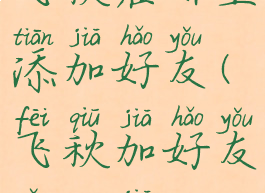 tiān jiā hǎo yǒu
添加好友(
fēi qiū jiā hǎo yǒu
飞秋加好友